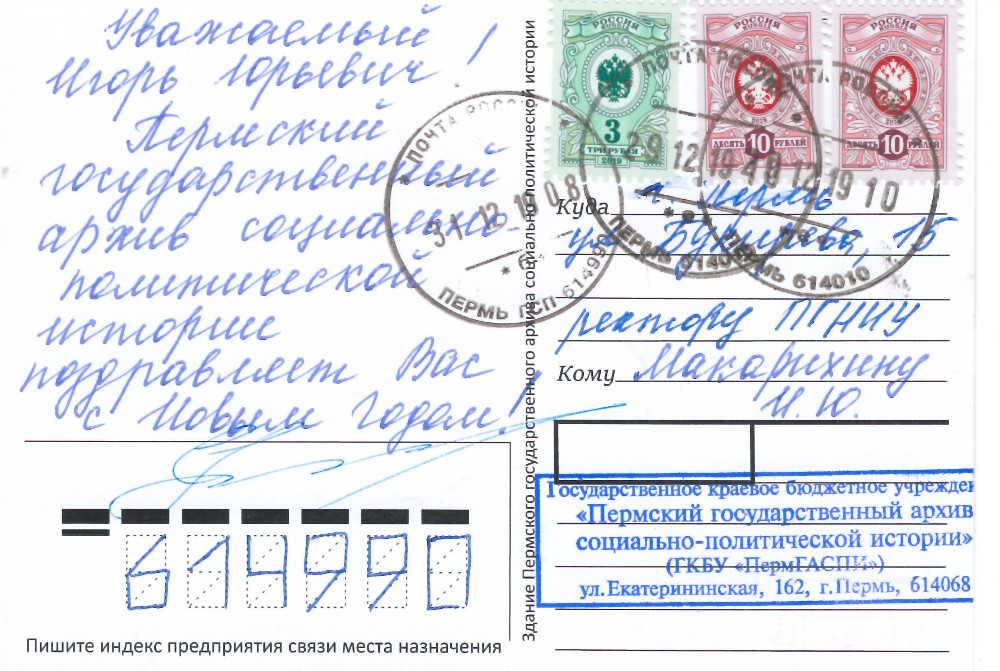 Уважаемый
Игорь Юрьевич!
Пермский
государственный
архив социально-
политической
истории
поздравляет Вас
с Новым Годом!
614990
Пишите индекс предприятия связи места назначения
Здание Пермского государственного архива социально-политической истории
РОССИЯ
ROSSIJA
3
ТРИ РУБЛЯ
2019
РОССИЯ
ROSSIJA
2019
ДЕСЯТЬ 10 РУБЛЕЙ
РОССИЯ
ROSSIJA
2019
ДЕСЯТЬ 10 РУБЛЕЙ
ПОЧТА РОССИИ
31 12 19 08
ПЕРМЬ ГСП 614999
ПОЧТА РОССИИ
29 12 19
ПЕРМЬ
ПОЧТА РОССИИ
19 10
ПЕРМЬ 614010
Куда г. Пермь
ул. Букирева, 15
ректору ПГНИУ
Кому Макарихину
И. Ю.
Государственное краевое бюджетное учрежден
«Пермский государственный архив
социально-политической истории»
(ГКБУ «ПермГАСПИ»)
ул.Екатерининская, 162, г.Пермь, 614068